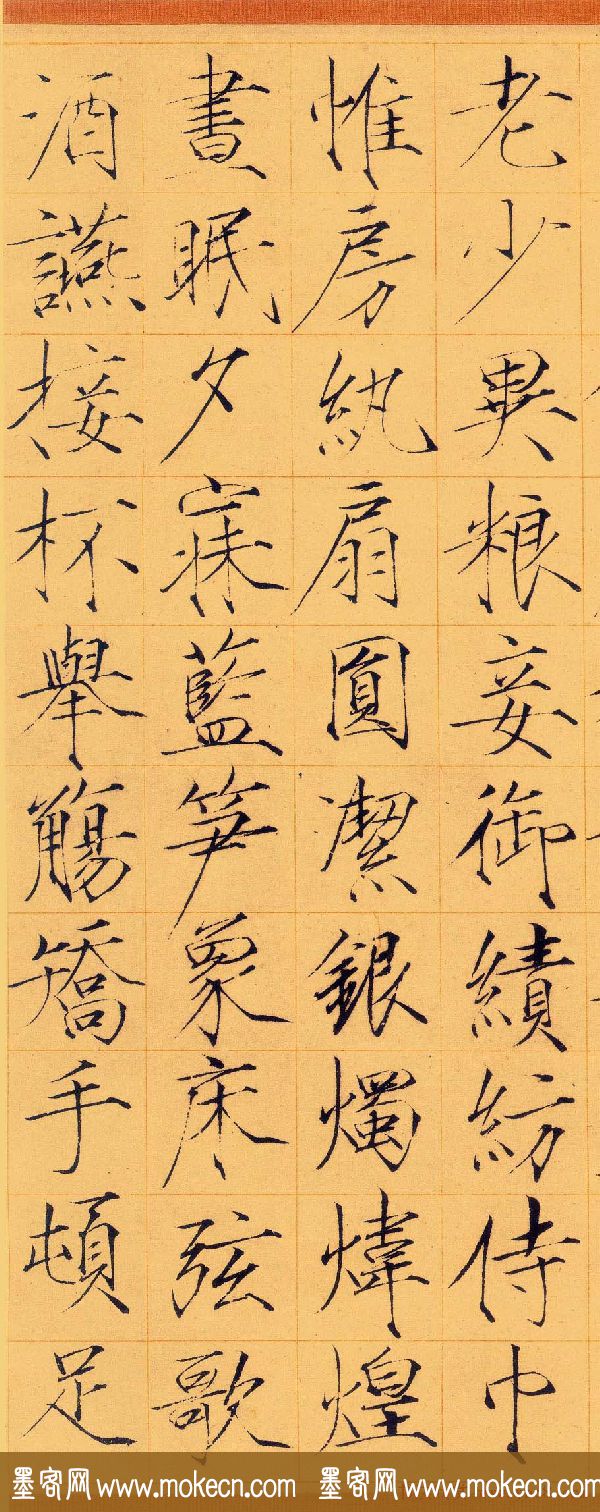 老少異粮妾御績紡侍巾
帷房紈扇圓潔銀燭煒煌
晝眠夕寐藍笋象床弦歌
酒讌接杯舉觴矯手頓足
墨客网 www.mokecn.com 墨客网 www.mokecn.com